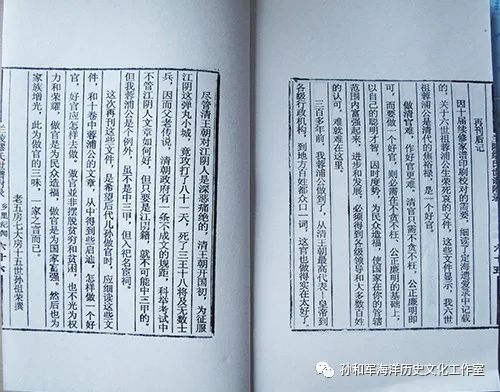 再刊后记
因十届修家谱印刷校对的要，细读了定海遗爱录中记载
的，关于六世祖蓉浦公生变死哀的文件，这些文件显示，我六世
祖蓉浦公是清代的焦裕禄，是一个好官。
做清官难，作好官更难，清官只需不贪不枉、公正廉明即
可，而要做一个好官，则必需在不贪不枉，公正廉明的基础上，
以自己的聪明才智，因时度势，为民众造福，使国家在你的管辖
范围内富强起来，进步和发展，必须得到各级领导和大多数百姓
的认可，难就难在这里。
三百多年前，我蓉浦公做到了，从清王朝最高代表，皇帝到
各级行政机构，到地方百姓都众口一词，这官也做得实在太好了。
尽管清王朝对江阴人是深恶痛绝的，清王朝开国初，为征服
江阴这弹丸小城，竟攻打了八十一天，死了三王十八将及无数士
兵，因而父老传说，清朝政府有一条不成文的规距，科举考试中
不管江阴人文章如何好，但只要是江阴籍，就不可能中三甲的，
但我蓉浦公是个例外，虽不是中三甲，但入祀名宦祠。
这次再刊这些文件，是希望后代儿孙做官时，应细读这些文
件，和十卷中蓉浦公的文章，从中得到些启迪，怎样做一个好
官，好官应怎样去做，做官并非摆脱贫穷和贫困，也不光为权
力和荣耀，做官是为民众造福，做官是为国家富强。然后也为
家族增光，此为做官的三味，一家之言而已。
老五房七大房十五世孙祖荣撰
乡里纪闻 六十六
孙和军海洋历史文化工作室